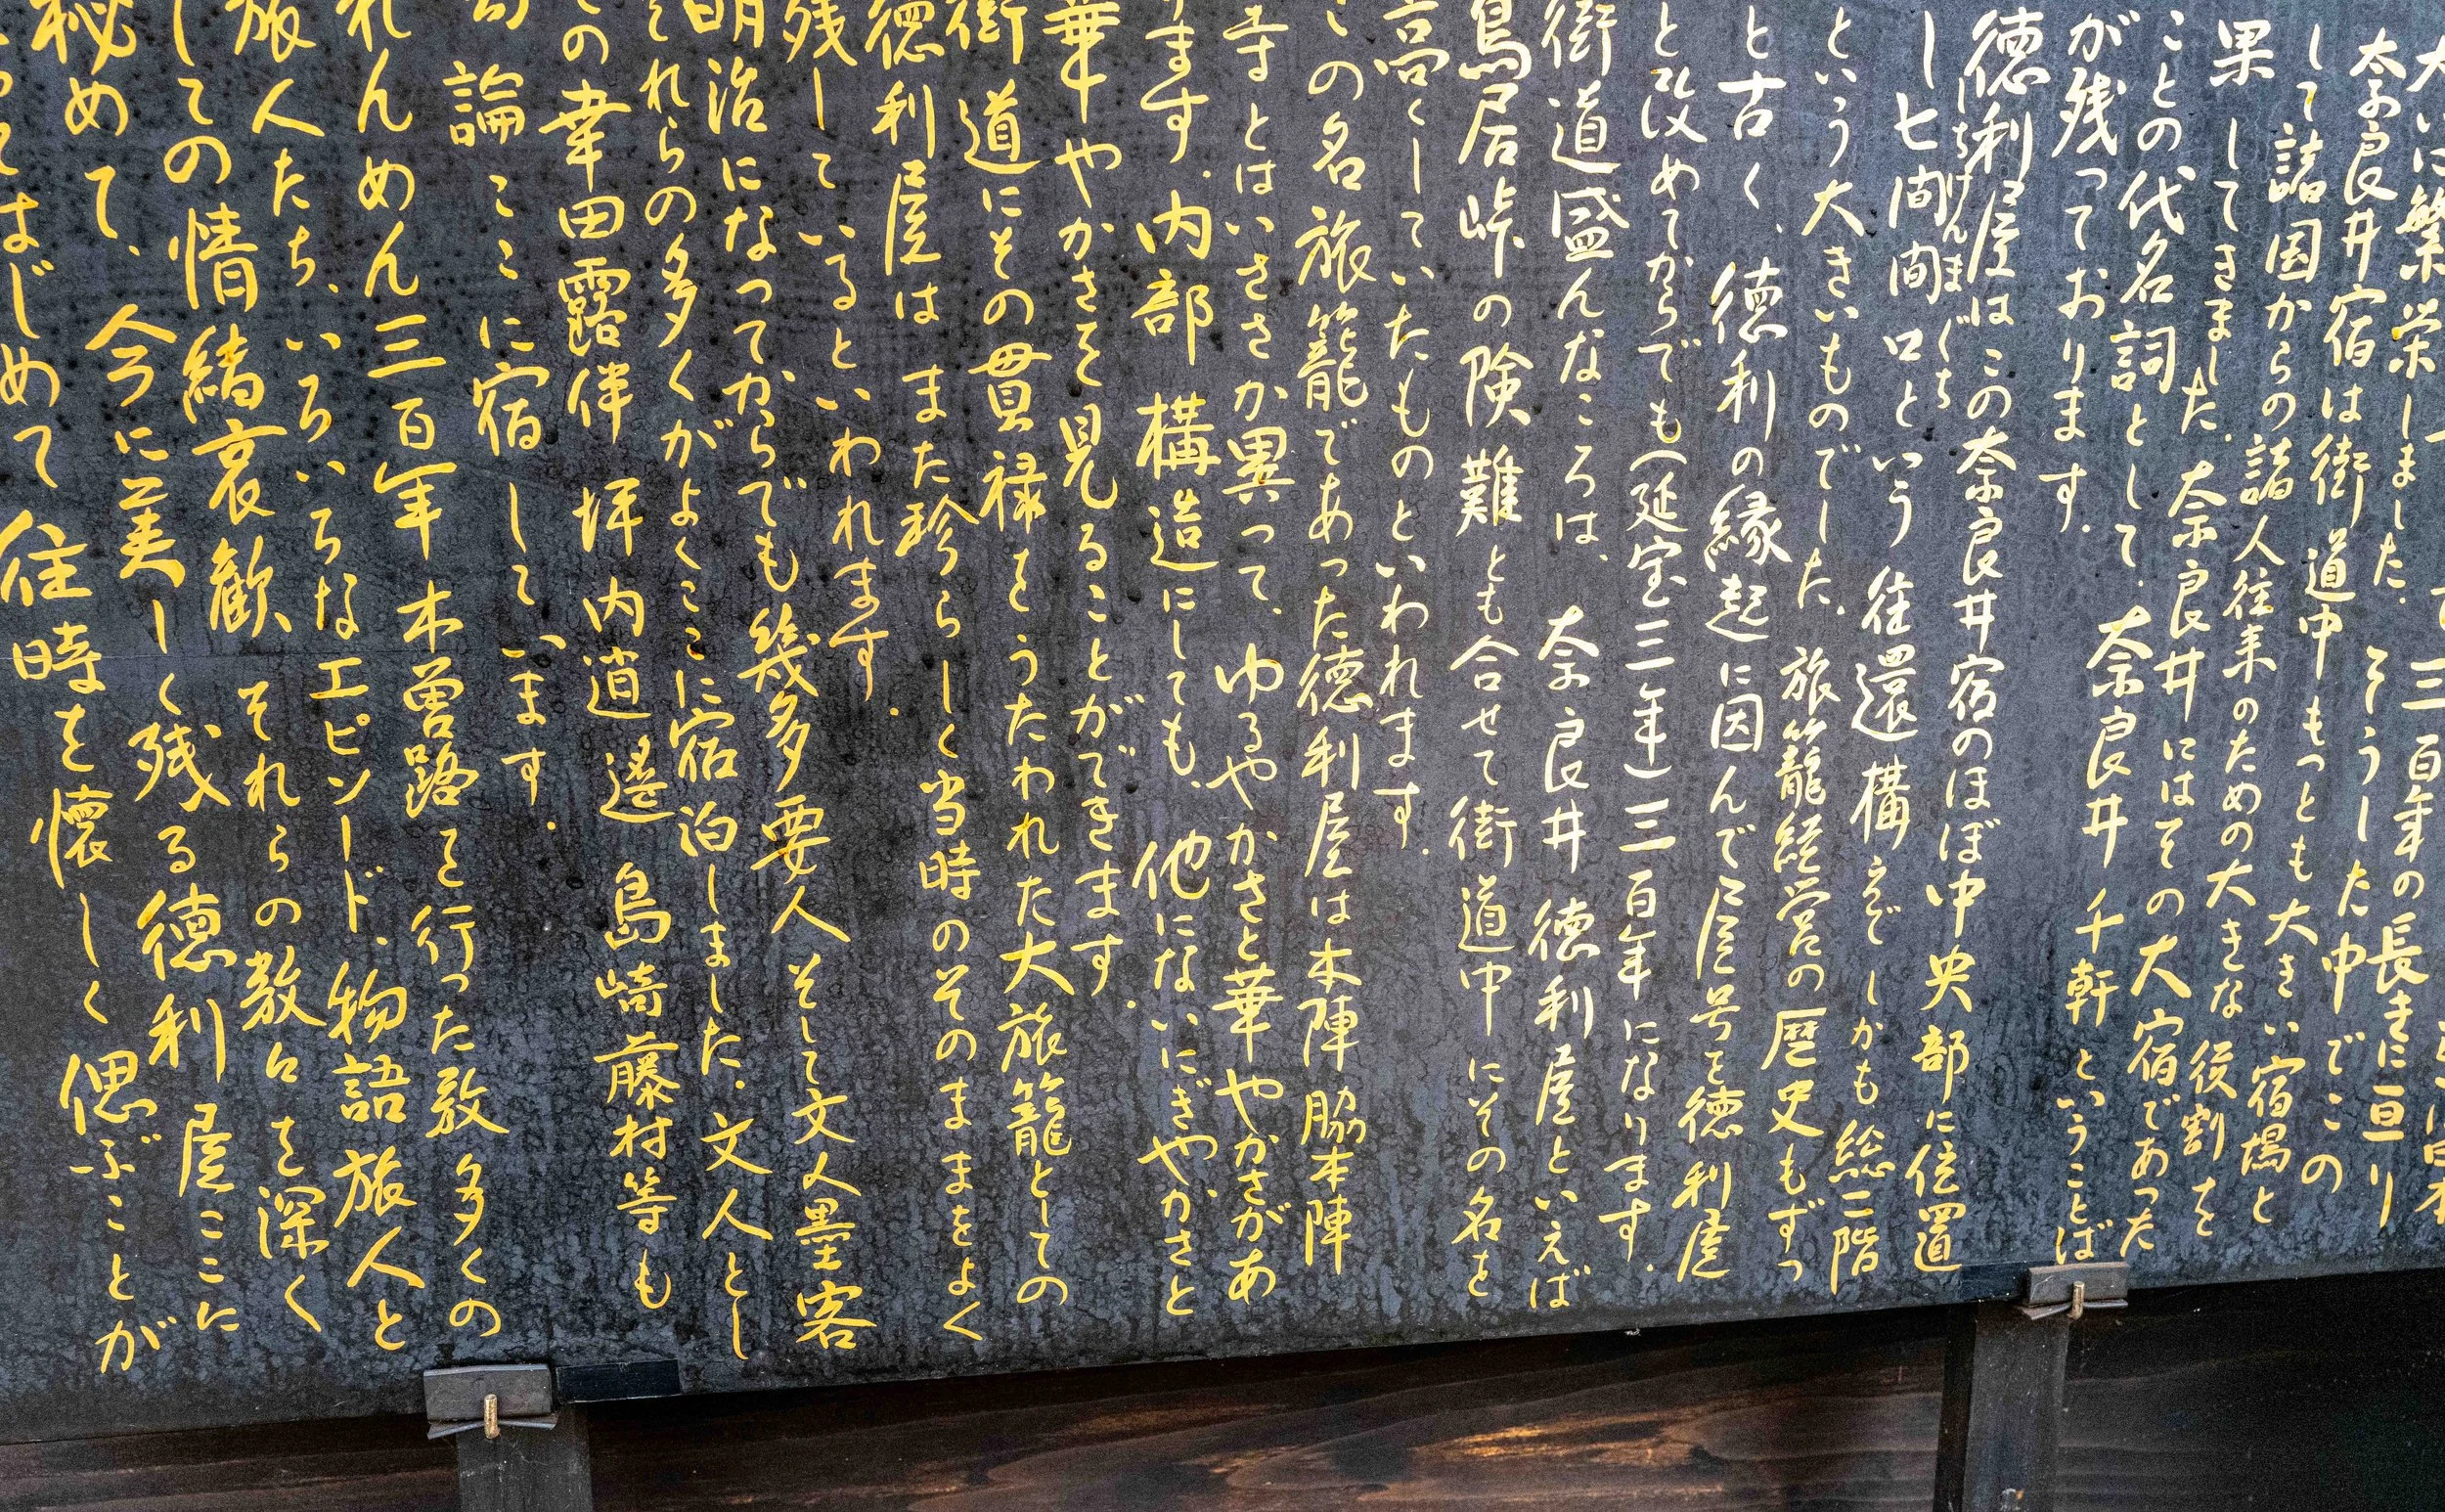 大いに繁栄しました。
三百年の長きに亘り
奈良井宿は街道中もっとも大きい宿場と
して諸国からの諸人往来のための大きな役割を
果してきました。奈良井にはその大宿であった
ことの代名詞として、奈良井千軒ということば
が残っております。
徳利屋はこの奈良井宿のほぼ中央部に位置
し七間間口という往還構えでしかも総二階
しちけんまぐち
という大きいものでした。旅籠経営の歴史もずっ
と古く、徳利の縁起に因んで屋号を徳利屋
と改めてからでも(延宝三年)三百年になります。
街道盛んなころは、奈良井徳利屋といえば
鳥居峠の険難とも合せて街道中にその名を
高くしていたものといわれます。
この名旅籠であった徳利屋は本陣脇本陣
寺とはいささか異って、ゆるやかさと華やかさがあ
ります。内部構造にしても、他にないにぎやかさと
華やかさを見ることができます。
街道にその貫禄をうたわれた大旅籠としての
徳利屋はまた珍らしく当時のそのままをよく
残しているといわれます。
明治になってからでも幾多要人そして文人墨客
それらの多くがよくここに宿泊しました。文人とし
ての幸田露伴 坪内逍遙 島崎藤村等も
勿論ここに宿しています。
れんめん三百年木曽路を行った数多くの
旅人たち、いろいろなエピソード、物語旅人と
しての情緒哀歓それらの数々を深く
秘めて、今に美しく残る徳利屋ここに
はじめて往時を懐しく偲ぶことが